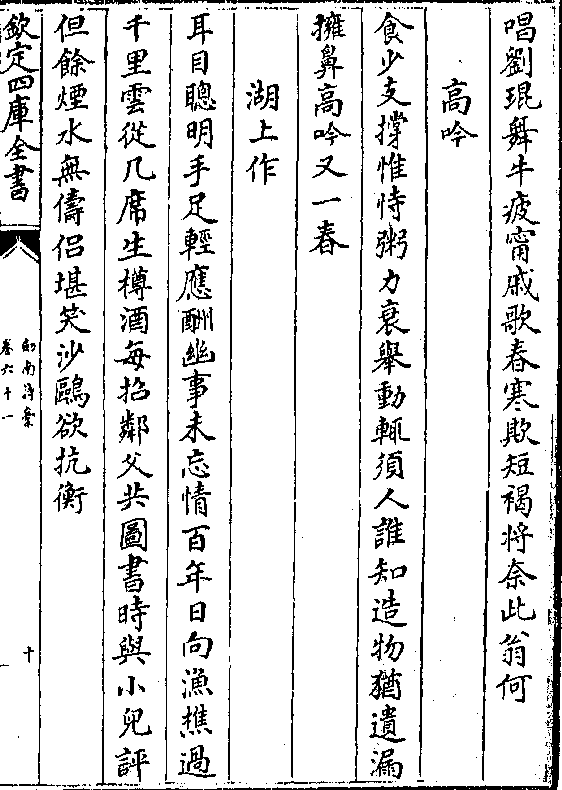 唱劉琨舞牛疲甯戚歌春寒欺短褐将奈此翁何
高吟
食少支撐惟恃粥力衰舉動輒須人誰知造物猶遺漏
擁鼻高吟又一春
湖上作
耳目聰明手足輕應酬幽事未忘情百年日向漁樵過
千里雲從几席生樽酒每招鄰父共圖書時與小兒評
但餘煙水無儔侣堪笑沙鷗欲抗衡
欽定四庫全書
劍南詩稾
卷六十一
十